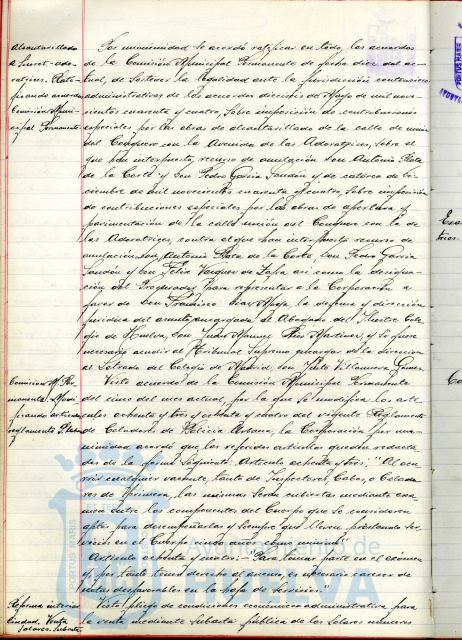 Por unanimidad se acordó ratificar en todo, los acuerdos
de la Comisión Municipal Permanente de fecha diez del ac-
tual, de sostener la legalidad ante la jurisdicción contencioso
administrativa de los acuerdos dieciseis de Mayo de mil nove-
cientos cuarenta y cuatro, sobre imposición de contribuciones
especiales por las obras de alcantarillado de la calle de unión
del Conquero con la Avenida de las Adoratrices, sobre el
que han interpuesto recurso de anulación Don Antonio Plata
de la Corte y Don Pedro Garcia Jaudón y de catorce de Di-
ciembre de mil novecientos cuarenta y cuatro, sobre imposición
de contribuciones especiales por las obras de apertura y
pavimentación de la calle unión del Conquero con la de
las Adoratrices, contra el que han interpuesto recurso de
anulación Don Antonio Plata de la Corte, Don Pedro Garcia
Jaudón y Don Felix Vazquez de Zafa así como la designa-
ción del Procurador para representar a la Corporación a
favor de Don Francisco Diaz la defensa y dirección
jurídica del asunto encargada al Abogado del Ilustre Cole-
gio de Huelva, Don Manuel Rios Martinez, y si fuese
necesario acudir al Tribunal Supremo encarga de la dirección
al Letrado del Colegio de Madrid, Don Villanueva
Visto acuerdo de la Comisión Municipal Permanente
del cinco del mes actual, por la que se modifica los artí-
culos ochenta y tres y ochenta y cuatro del vigente Reglamento
de Celadores de Policía Urbana, la Corporación por una-
nimidad acordó que los referidos artículos queden redacta-
dos de la forma siguiente: Artículo ochenta y tres: "Al ocu-
rrir cualquier vacante, tanto de Inspectores, Cabos, o Celado-
res de primera, las mismas serán cubiertas mediante exa-
men entre los componentes del Cuerpo que se consideren
aptos para desempeñarlas y siempre que lleven prestando ser-
vicios en el Cuerpo cinco años como mínimo."
Artículo ochenta y cuatro: "Para tomar parte en el exámen
y por tanto tener derecho de ascenso, es necesario carecer de
notas desfavorables en la hoja de servicios."
Visto pliego de condiciones económico administrativa para
la venta mediante subasta pública de los solares números
Alcantarillado
Comisión Muni-
cipal Permanente
Comisión M. Per-
manente. Modi-
Reglamento
Reforma interior
Ciudad. Venta
Solares. Subasta